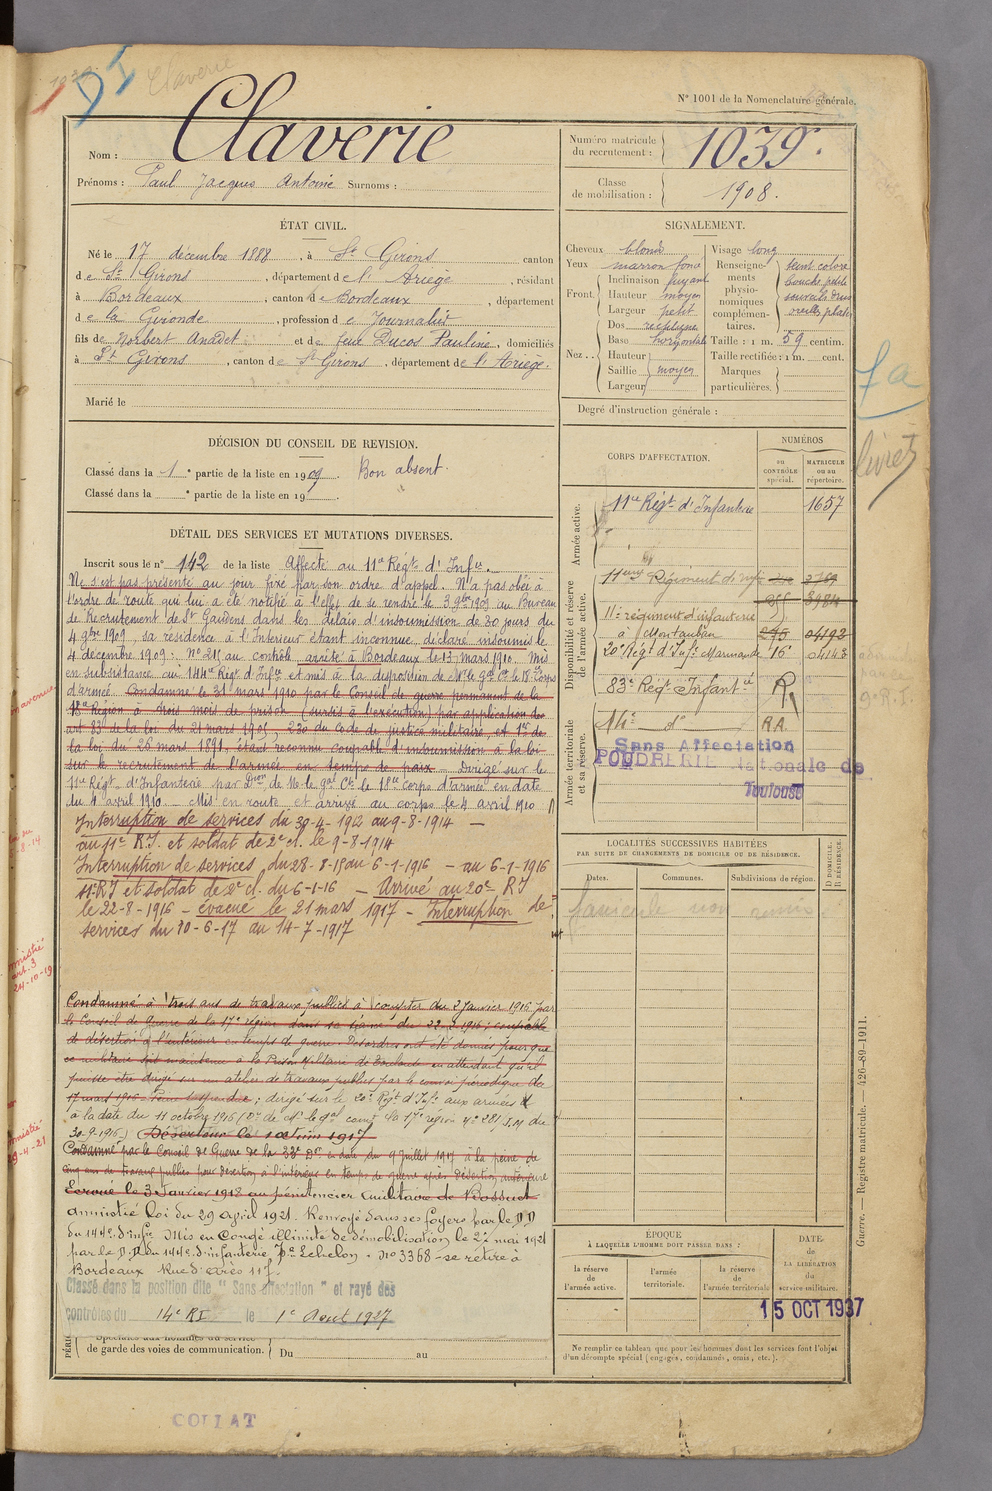 Claverie
N° 1001 de la Nomenclature générale.
Nom : Claverie
Prénoms : Paul Jacques Antoine Surnoms :
Numéro matricule du recrutement : 1039.
Classe de mobilisation : 1908.
ÉTAT CIVIL.
Né le 17 décembre 1888, à St Girons canton
de St Girons, département de l'Ariège, résidant
à Bordeaux, canton de Bordeaux, département
de la Gironde, profession de Journalist
fils de Norbert Anadet et de feue Ducos Pauline, domiciliés
à St Girons, canton de St Girons, département de l'Ariège.
Marié le
SIGNALEMENT.
Cheveux blonds
Yeux marron foncé
Front. Inclinaison fuyant
Hauteur moyen
Largeur petit
Nez. Dos rectiligne
Base horizontale
Hauteur
Saillie moyen
Largeur
Visage long
Renseignements physionomiques complémentaires. teint coloré
bouche petite
sourcils drus
oreilles plates
Taille : 1 m. 59 centim.
Taille rectifiée : 1 m. cent.
Marques particulières.
Degré d'instruction générale :
fa
livret
DÉCISION DU CONSEIL DE REVISION.
Classé dans la 1e partie de la liste en 1909. Bon absent.
Classé dans la e partie de la liste en 19
DÉTAIL DES SERVICES ET MUTATIONS DIVERSES.
Inscrit sous le n° 142 de la liste Affecté au 11e Régt d'Infie.
Ne s'est pas présenté au jour fixé par son ordre d'appel. N'a pas obéi à
l'ordre de route qui lui a été notifié à l'effet de se rendre le 3 9bre 1909 au Bureau
de Recrutement de St Gaudens dans les délais d'insoumission de 30 jours du
4 9bre 1909, sa résidence à l'Intérieur étant inconnue, déclaré insoumis le
4 décembre 1909. N° 211 au contrôle, arrêté à Bordeaux le 13 mars 1910. Mis
en subsistance au 144e Régt d'Infie et mis à la disposition de Mr le Gal Ct le 18e Corps
d'armée. Condamné le 31 mars 1910 par le Conseil de guerre permanent de la
18e Région à trois mois de prison (sursis à l'exécution) par application des
art. 83 de la loi du 21 mars 1905, 230 du Code de justice militaire, et 1er de
la loi du 26 mars 1891, étant reconnu coupable d'insoumission à la loi
sur le recrutement de l'armée en temps de paix. Dirigé sur le
11e Régt d'Infanterie par Don de Mr le gal Ct le 18e corps d'armée en date
du 4 avril 1910. Mis en route et arrivé au corps le 4 avril 1910
Interruption de services du 30-4-1912 au 9-8-1914 —
au 11e R.I. et soldat de 2e cl. le 9-8-1914
Interruption de services du 28-8-15 au 6-1-1916 — au 6-1-1916
11e RI et soldat de 2e cl. du 6-1-16 — Arrivé au 20e RI
le 22-8-1916 — évacué le 21 mars 1917 — Interruption de
services du 10-6-17 au 14-7-1917
Condamné à trois ans de travaux publics à compter du 2 Janvier 1916 par
le Conseil de Guerre de la 17e région dans sa séance du 22-2-1916; coupable
de désertion à l'intérieur en temps de guerre. Des ordres ont été donnés pour que
ce militaire soit maintenu à la Prison Militaire de Toulouse en attendant qu'il
puisse être dirigé sur un atelier de travaux publics par le convoi périodique du
17 mars 1916. Peine suspendue; dirigé sur le 20e Régt d'Infie aux armées
à la date du 11 octobre 1916 (Dn de Mr le gal comt la 17e région n° 281 J.M du
30-9-1916.) Déserteur le 10 Juin 1917
Condamné par le Conseil de Guerre de la 33e Dn en date du 9 Juillet 1917 à la peine de
cinq ans de travaux publics pour désertion à l'intérieur en temps de guerre après désertion antérieure
Ecroué le 3 Janvier 1918 au pénitencier militaire de Bossuet
amnistié loi du 29 april 1921. Renvoyé dans ses foyers par le D.D
du 144e d'Infie. Mis en Congé illimité de démobilisation le 27 mai 1921
par le D.D du 144e d'infanterie, Pr Echelon. N° 3368 — se retire à
Bordeaux Rue d'Arès 117.
Classé dans la position dite " Sans affectation " et rayé des
contrôles du 14e RI le 1er Aout 1927
Spéciales aux hommes du service
de garde des voies de communication. Du au
CORPS D'AFFECTATION.
NUMÉROS
au CONTRÔLE spécial.
MATRICULE ou au répertoire.
Armée active.
11e Régt d'Infanterie 1657
Disponibilité et réserve de l'armée active.
11ème Régiment d'infie
11e régiment d'infanterie
à Montauban 04192
20e Régt d'Infie Marmande 16 04143
83e Régt Infantie R.
Armée territoriale et sa réserve.
14e d° R.A.
Sans Affectation
POUDRERIE Nationale de
Toulouse
LOCALITÉS SUCCESSIVES HABITÉES
PAR SUITE DE CHANGEMENTS DE DOMICILE OU DE RÉSIDENCE.
Dates. Communes. Subdivisions de région. D DOMICILE. R RÉSIDENCE.
fascicule non remis
ÉPOQUE
À LAQUELLE L'HOMME DOIT PASSER DANS :
la réserve de l'armée active.
l'armée territoriale.
la réserve de l'armée territoriale
DATE de LA LIBÉRATION du service militaire.
15 OCT 1937
Ne remplir ce tableau que pour les hommes dont les services font l'objet
d'un décompte spécial (engagés, condamnés, omis, etc.).
Guerre. — Registre matricule. — 426-89-1911.
COLLAT